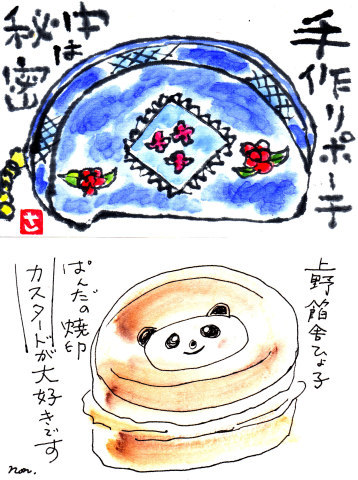 手作りポーチ
中は
秘密
さ
上野餡舎ひよ子
ぱんだの焼印
カスタードが大好きです
non.